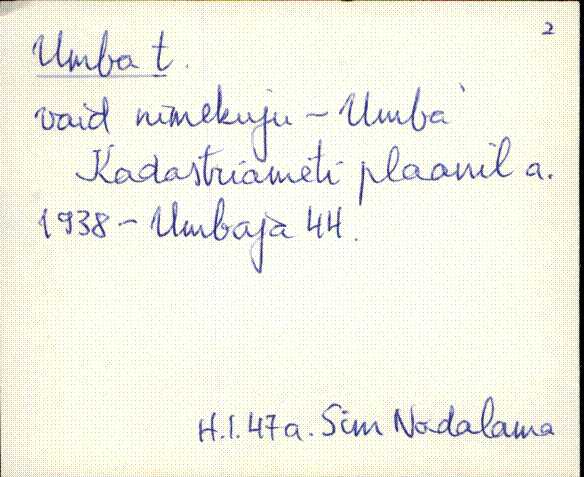 2
Umba t.
vaid nimekuju - Umba`
Kadastriameti plaanil a.
1938 - Umbaja 44.
H.I. 47a. Sim Nadalama